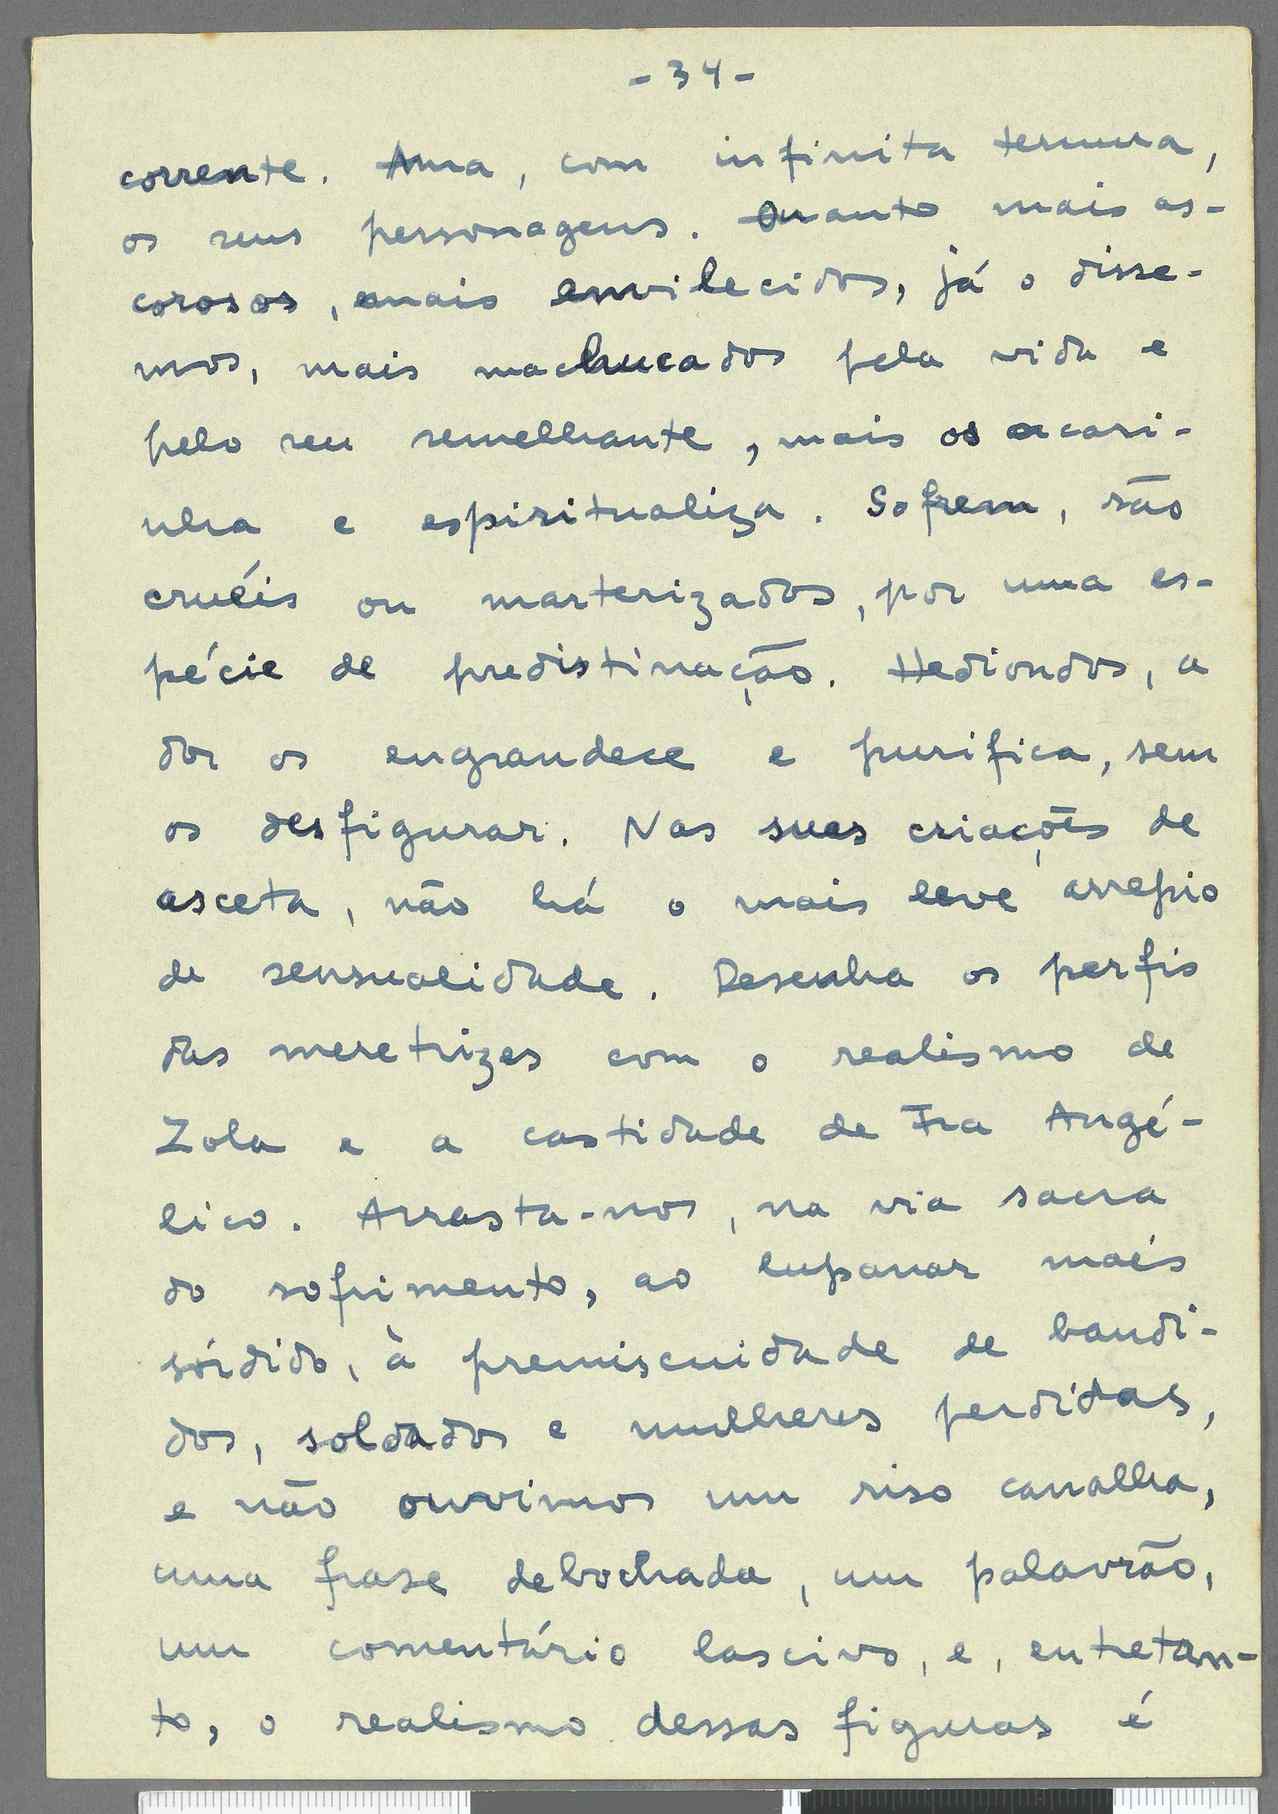 - 34 -
corrente. Ama, com infinita ternura,
os seus personagens. Quanto mais as-
corosos, mais envilecidos, já o disse-
mos, mais machucados pela vida e
pelo seu semelhante, mais os acari-
nha e espiritualiza. Sofrem, são
cruéis ou marterizados, por uma es-
pécie de predistinação. Hediondos, a
dor os engrandece e purifica, sem
os desfigurar. Nas suas criações de
asceta, não há o mais leve arrepio
de sensualidade. Desenha os perfis
das meretrizes com o realismo de
Zola e a castidade de Fra Angé-
lico. Arrasta-nos, na via sacra
do sofrimento, ao lupanar mais
sórdido, à premiscuidade de bandi-
dos, soldados e mulheres perdidas,
e não ouvimos um riso canalha,
uma frase debochada, um palavrão,
um comentário lascivo, e, entretan-
to, o realismo dessas figuras é